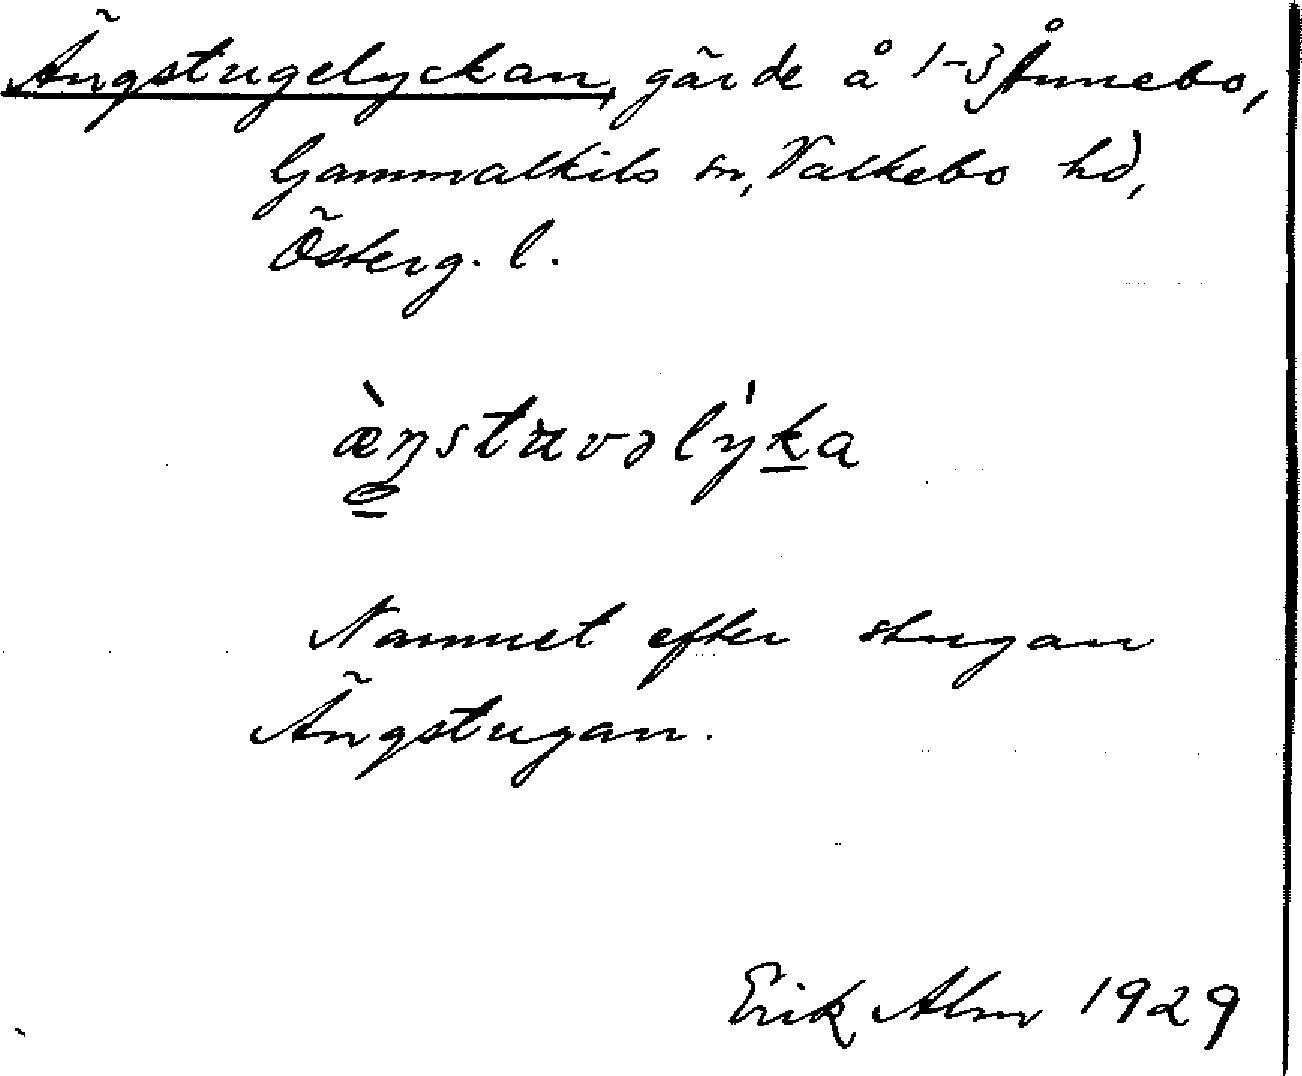 Ängstugelyckan, gärde å 1-3 Ånnebo,
Gammalkils sn, Valkebo hd,
Österg. l.
æ̀ŋstuvəlỳka
Namnet efter stugan
Ängstugan.
Erik Alm 1929